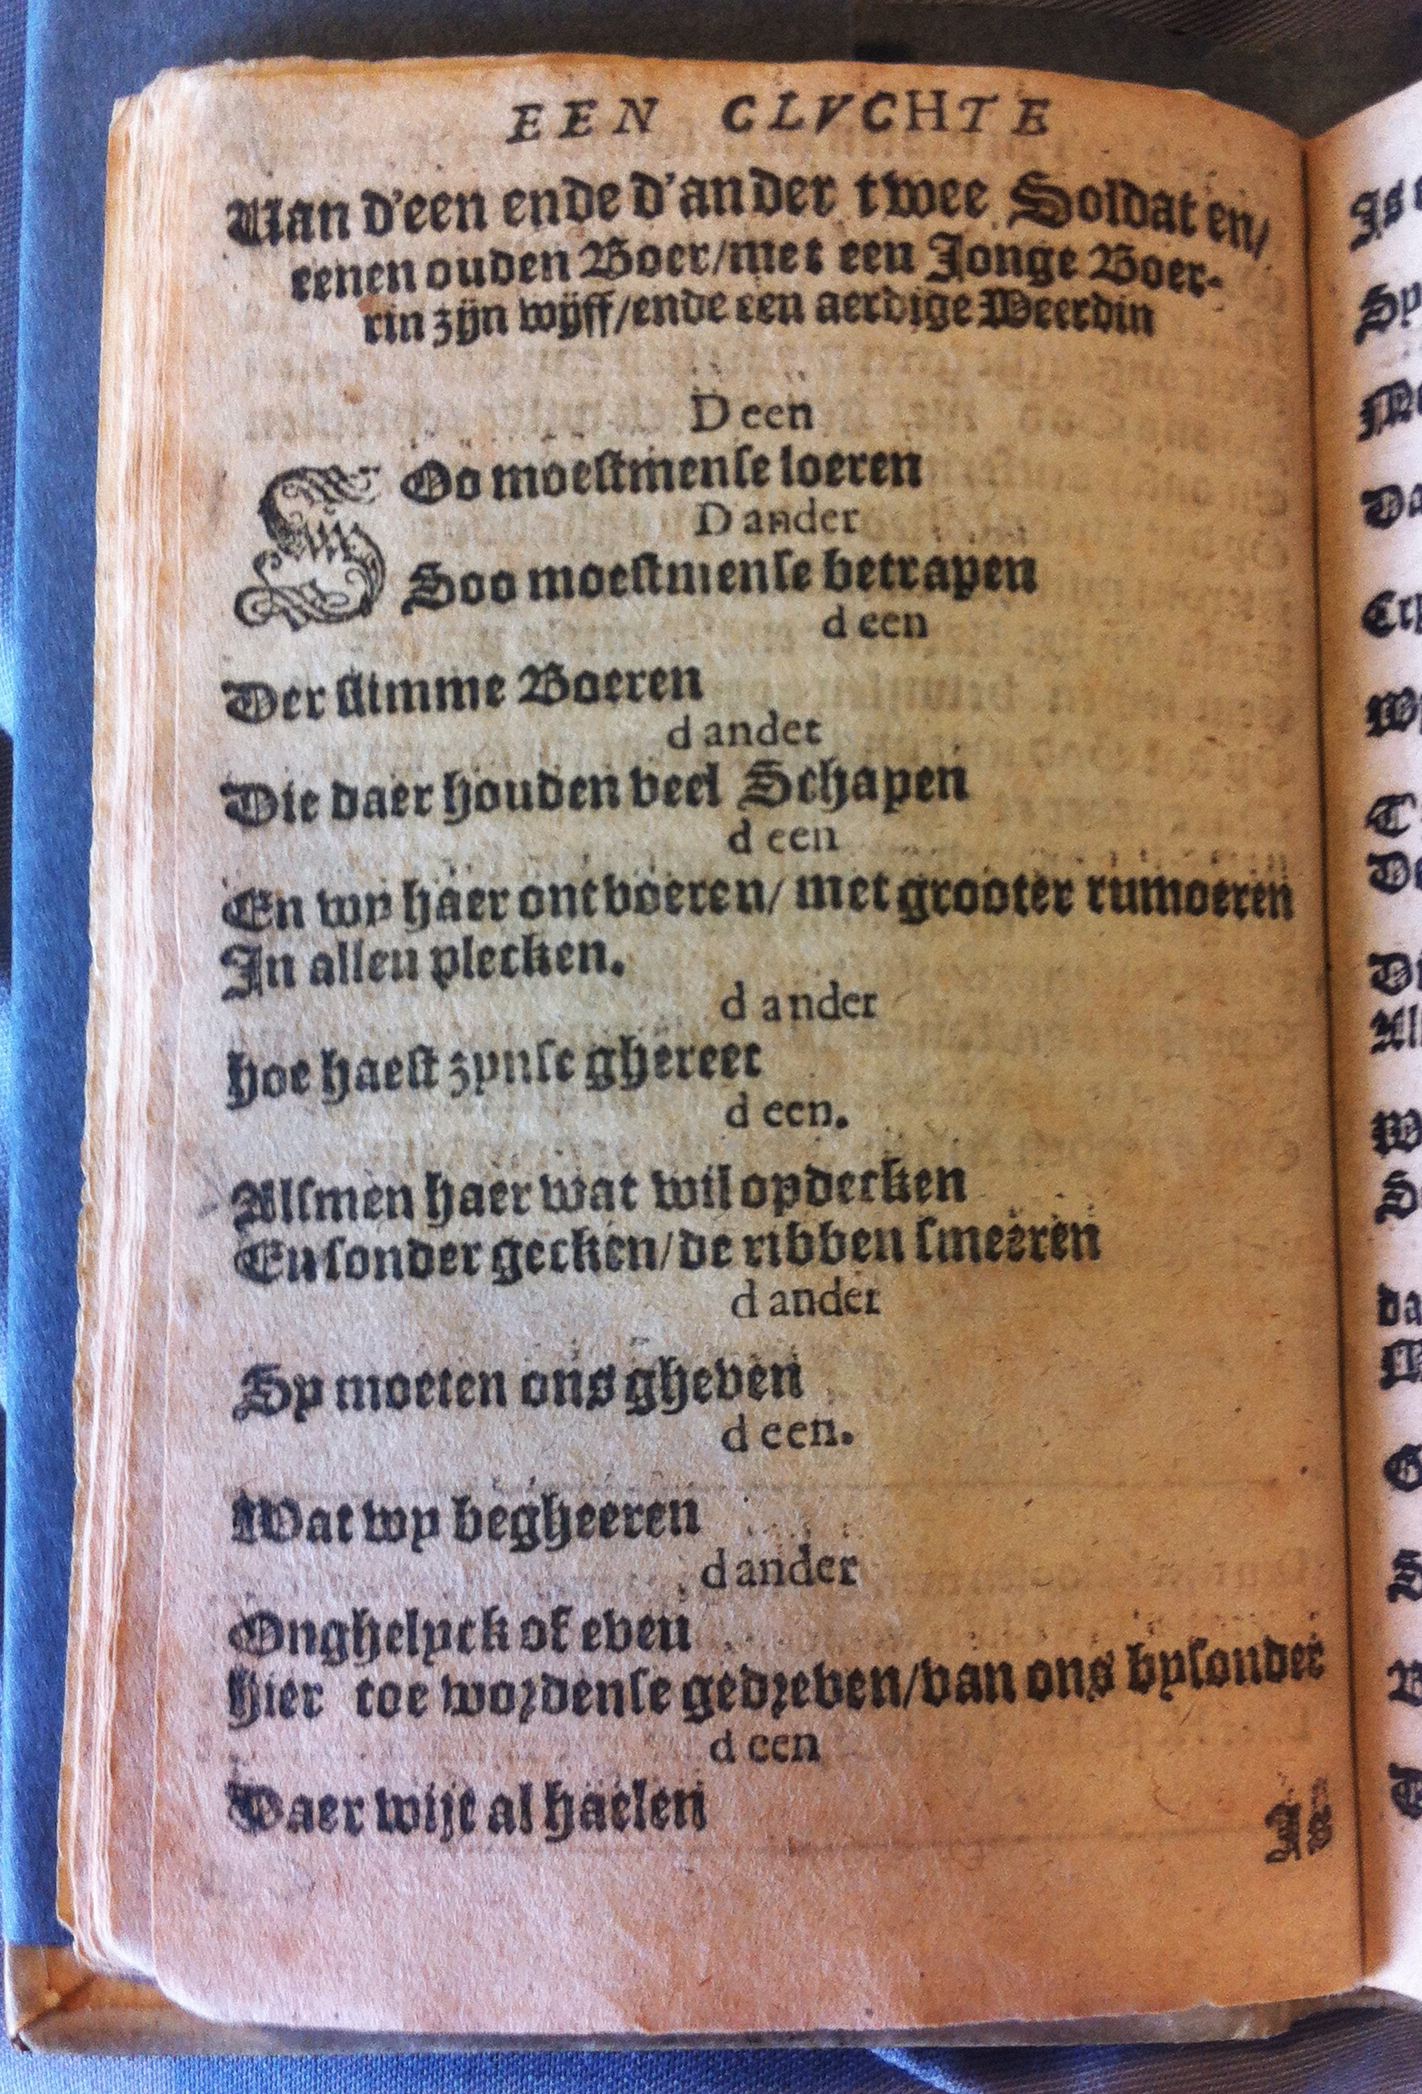 EEN CLVCHTE
Van d'een ende d'ander twee Soldaten/
eenen ouden Boer/met een Jonge Boer-
rin zijn wijff/ende een aerdige Weerdin
D een
SOo moestmense loeren
D ander
Soo moestmense betrapen
d een
Der slimme Boeren
d ander
Die daer houden veel Schapen
d een
En wy haer ontvoeren/ met grooter rumoeren
In allen plecken.
d ander
Hoe haest zynse ghereet
d een.
Alsmen haer wat wil opdecken
En sonder gecken/de ribben smeeren
d ander
Sy moeten ons gheven
d een.
Wat wy begheeren
d ander
Onghelyck of even
Hier toe wordense gedreven/van ons bysonder
d een
Daer wijt al haelen
Is
Sy
Da
Al
da